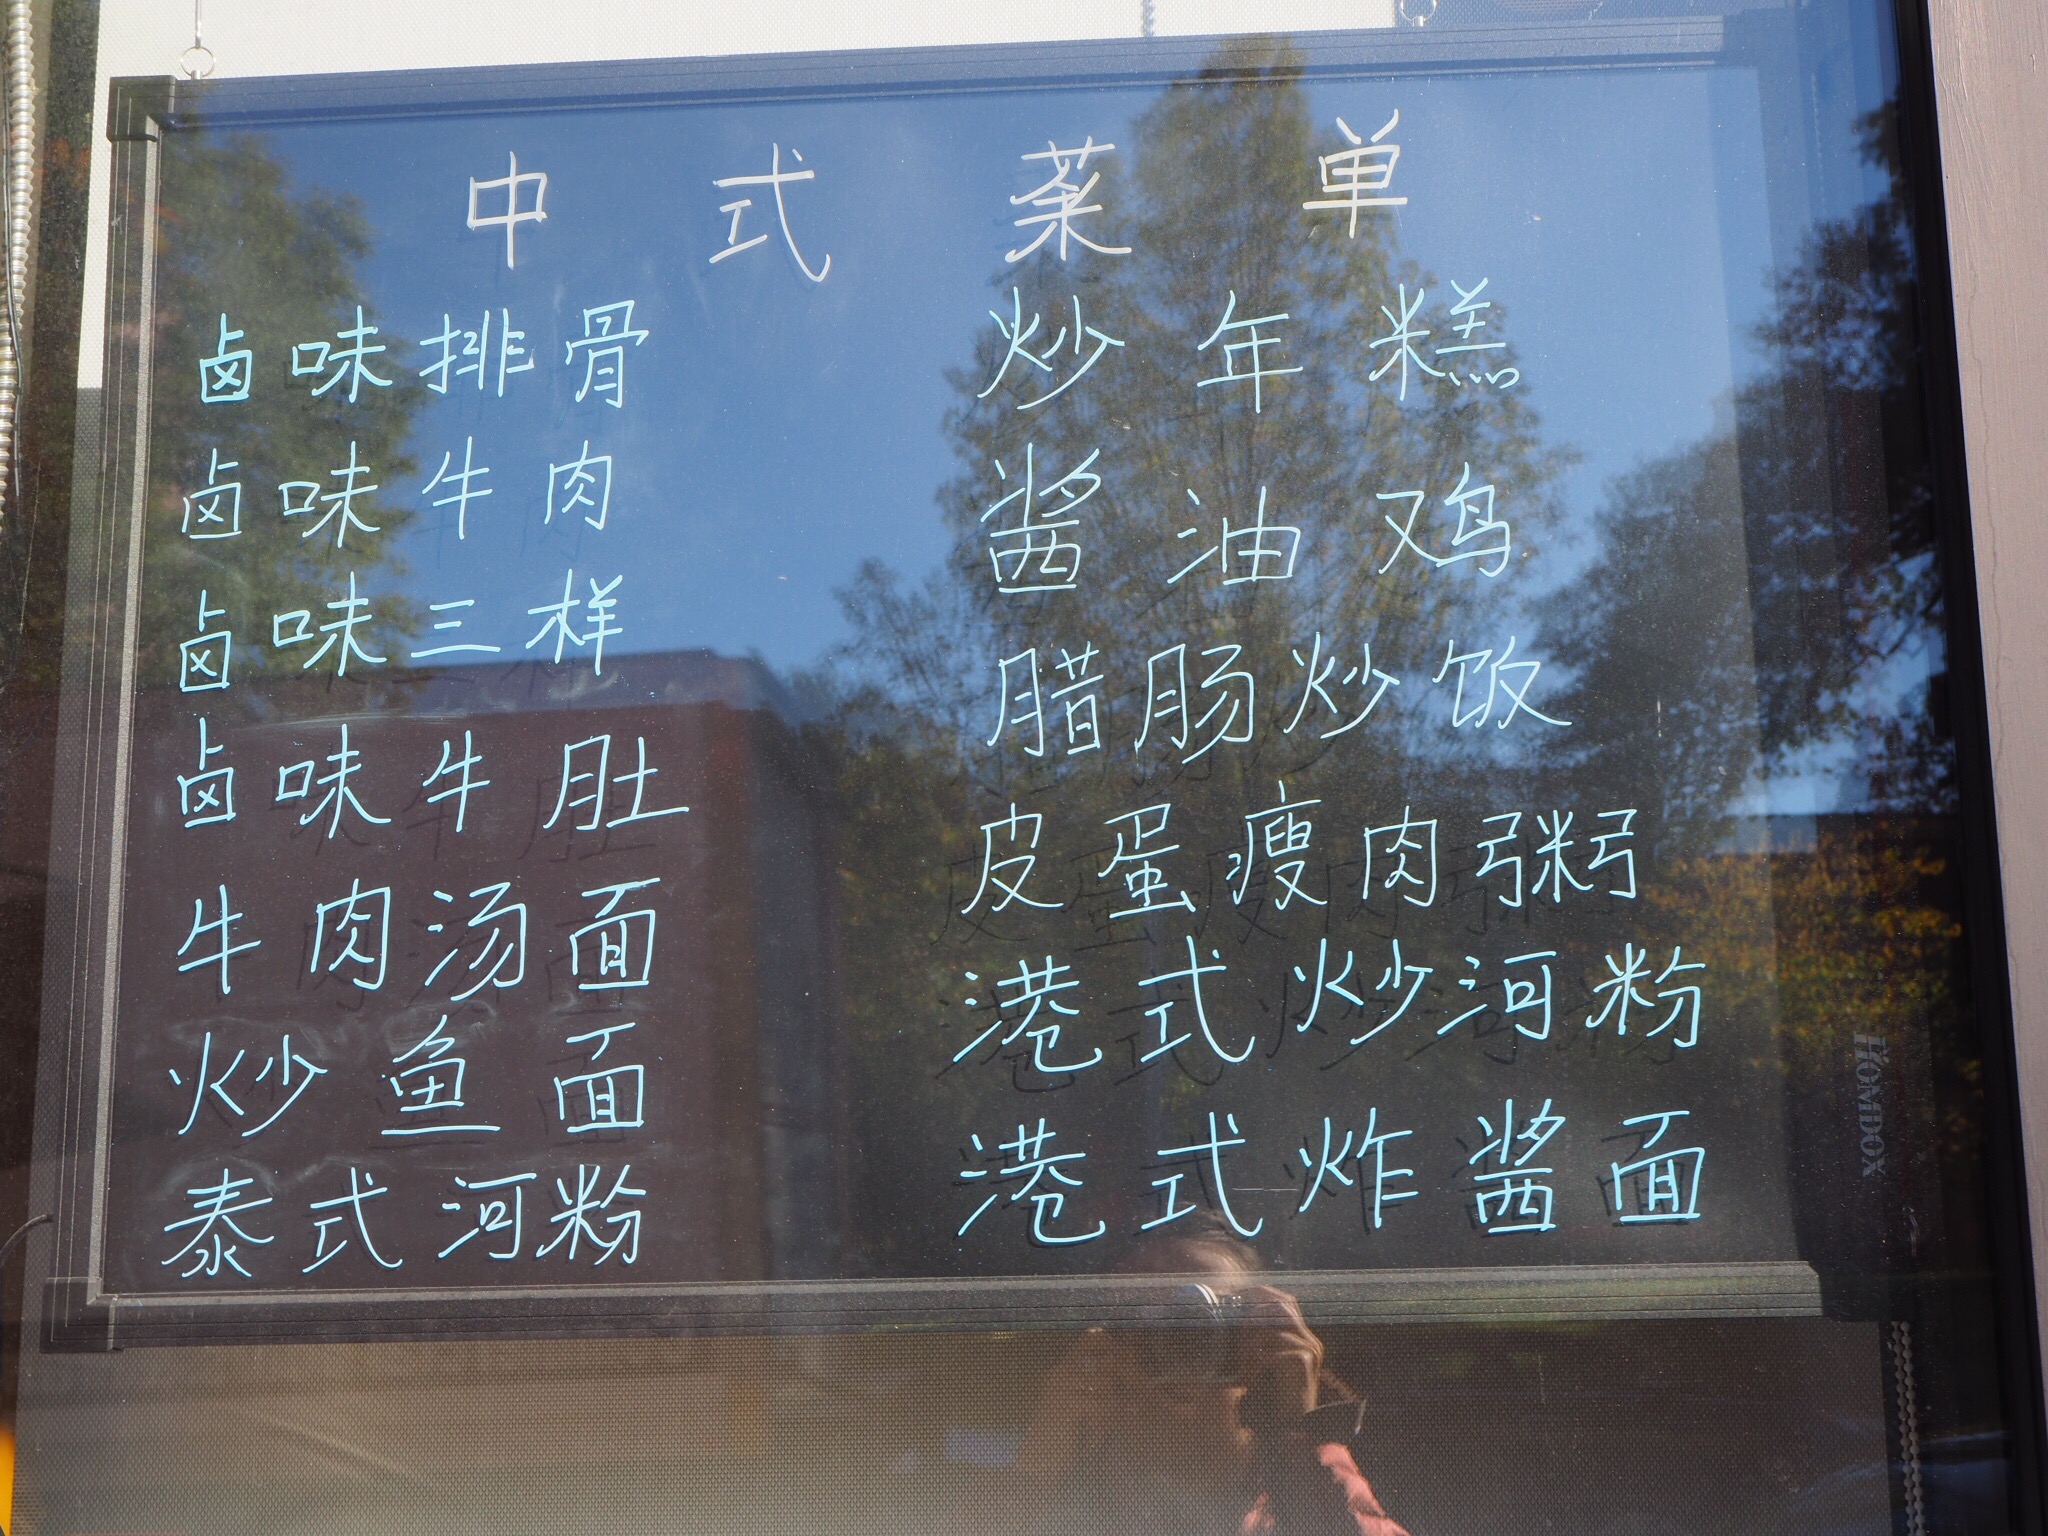 中式菜单
卤味排骨
卤味牛肉
卤味三样
卤味牛肚
牛肉汤面
炒鱼面
泰式河粉
炒年糕
酱油鸡
腊肠炒饭
皮蛋瘦肉粥
港式炒河粉
港式炸酱面
HOMDOX